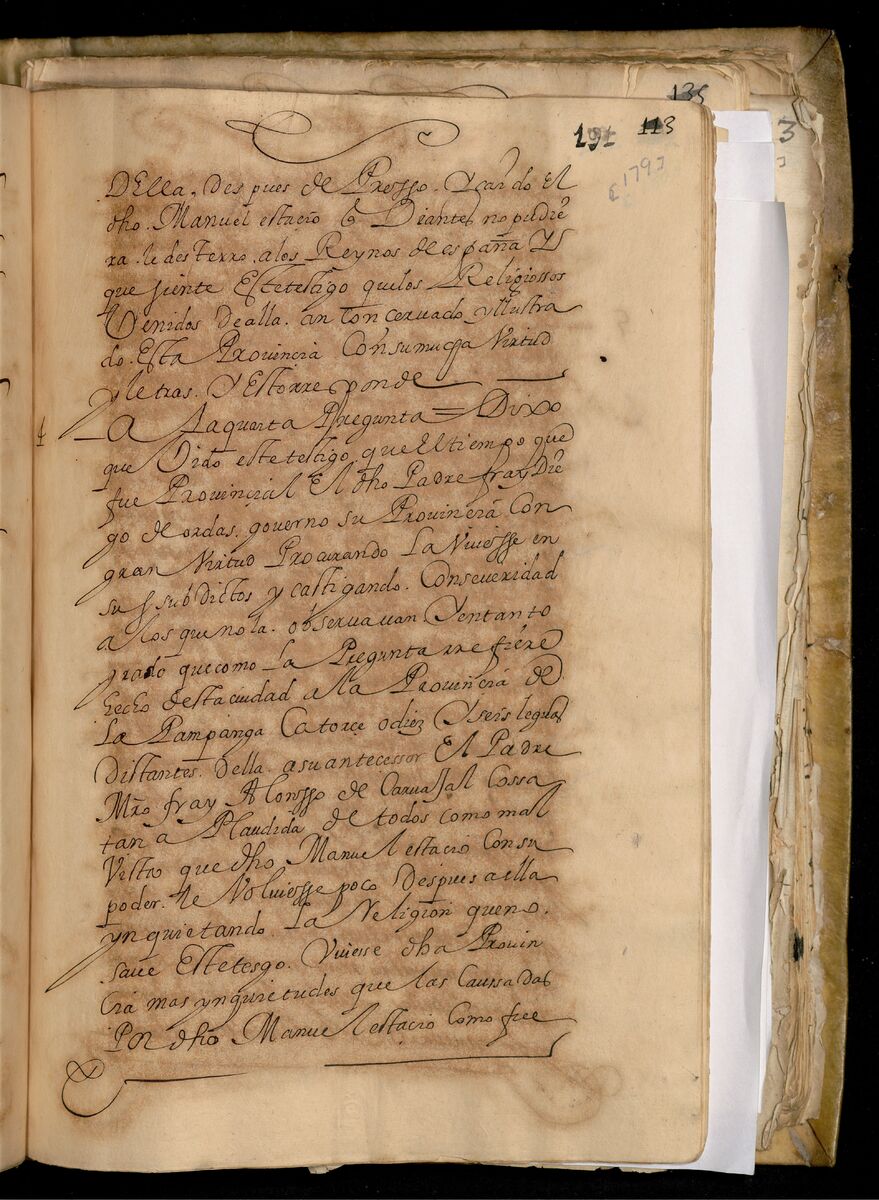 135
191 113
[179]
3
della. despues de Presso. Y cardo el
dho. Manuel estacio Diante no pudie
ra. le desterro. a los Reynos de españa Y
que siente Este testigo que los Religiossos
Venidos de alla. an Concervado y Ilustra
do. Esta Provincia Con su mucha Virtud
y letras. Y Esto rresponde
4 A La quarta Pregunta = Dixo
que Oido este testigo que El tiempo que
fue Provincial El dho Padre fray Die
go de ordas. governo su Provincia Con
gran Virtud Procurando La Viviesse en
sus subdictos y castigando. Con severidad
a los que no la. observavan Y en tanto
grado que como La Pregunta rrefiere
hecho desta ciudad a la Provincia de
La Pampanga Catorce o diez Y seis leguas
Distantes. della. a su antecessor El Padre
Mro fray Alonsso de Carvajal Cossa
tan aPlaudida de todos como mal
Vista que dho Manuel estacio Con su
poder. le Volviesse poco despues a ella
ynquietando. La Religion que no.
save Este tesgo. Uviesse dha Provin
cia mas ynquietudes que las Caussadas
Por dho Manuel estacio Como fue